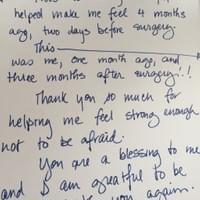 helped make me feel 4 months
ago, two days before surgery.
This
was me, one month ago, and
three months after surgery!!
Thank you so much for
helping me feel strong enough
not to be afraid.
You are a blessing to me
and I am greatful to be
you again.